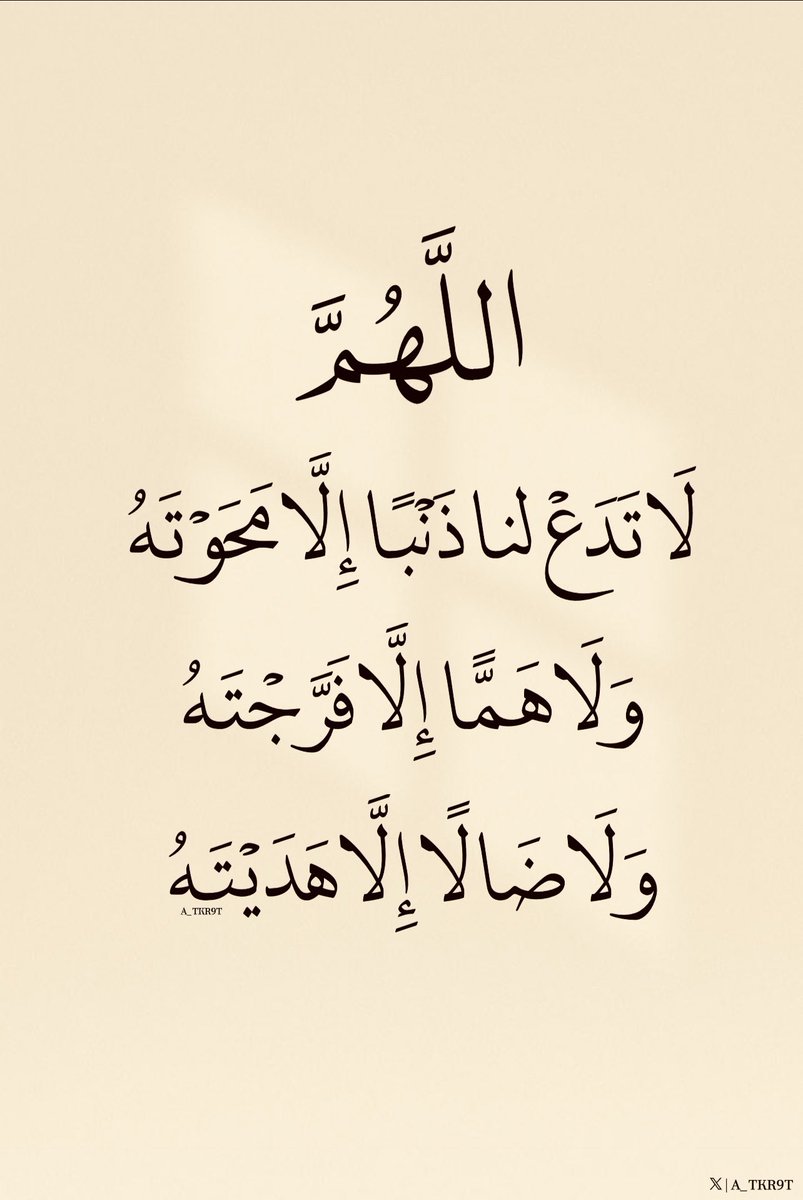 اللَّهُمَّ
لَا تَدَعْ لنا ذَنْبًا إِلَّا مَحَوْتَهُ
وَلَا هَمًّا إِلَّا فَرَّجْتَهُ
وَلَا ضَالًا إِلَّا هَدَيْتَهُ
A_TKR9T
𝕏 | A_TKR9T